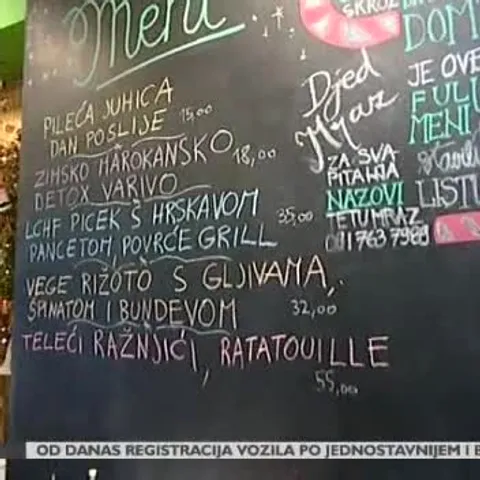 Meni
PILEĆA JUHICA
DAN POSLIJE 15,00
ZIMSKO MAROKANSKO
DETOX VARIVO 18,00
LCHF PICEK S HRSKAVOM
PANCETOM, POVRĆE GRILL 35,00
VEGE RIŽOTO S GLJIVAMA,
ŠPINATOM I BUNDEVOM 32,00
TELEĆI RAŽNJIĆI, RATATOUILLE
55,00
SKROZ
DOM
Djed
Mraz
ZA SVA
PITANJA
NAZOVI
TETU MRAZ
091 763 7989
JE OVE
FULL
MENI
LISTU
OD DANAS REGISTRACIJA VOZILA PO JEDNOSTAVNIJEM I